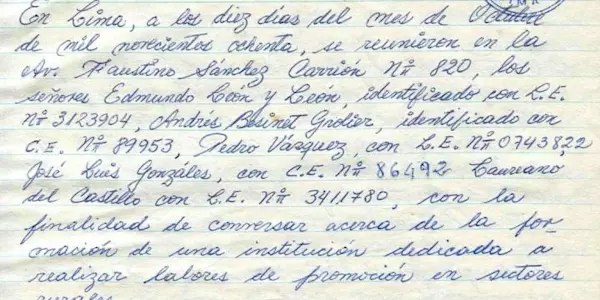 En Lima, a los diez días del mes de Octubre
de mil novecientos ochenta, se reunieron en la
Av. Faustino Sánchez Carrión Nº 820, los
señores Edmundo León y León, identificado con L.E.
Nº 3123904, Andrés Bosinet Grolier, identificado con
C.E. Nº 89953, Pedro Vásquez, con L.E. Nº 0743822
José Luis Gonzáles, con C.E. Nº 86492 Laureano
del Castillo con L.E. Nº 3411780, con la
finalidad de conversar acerca de la for_
mación de una institución dedicada a
realizar labores de promoción en sectores
rurales